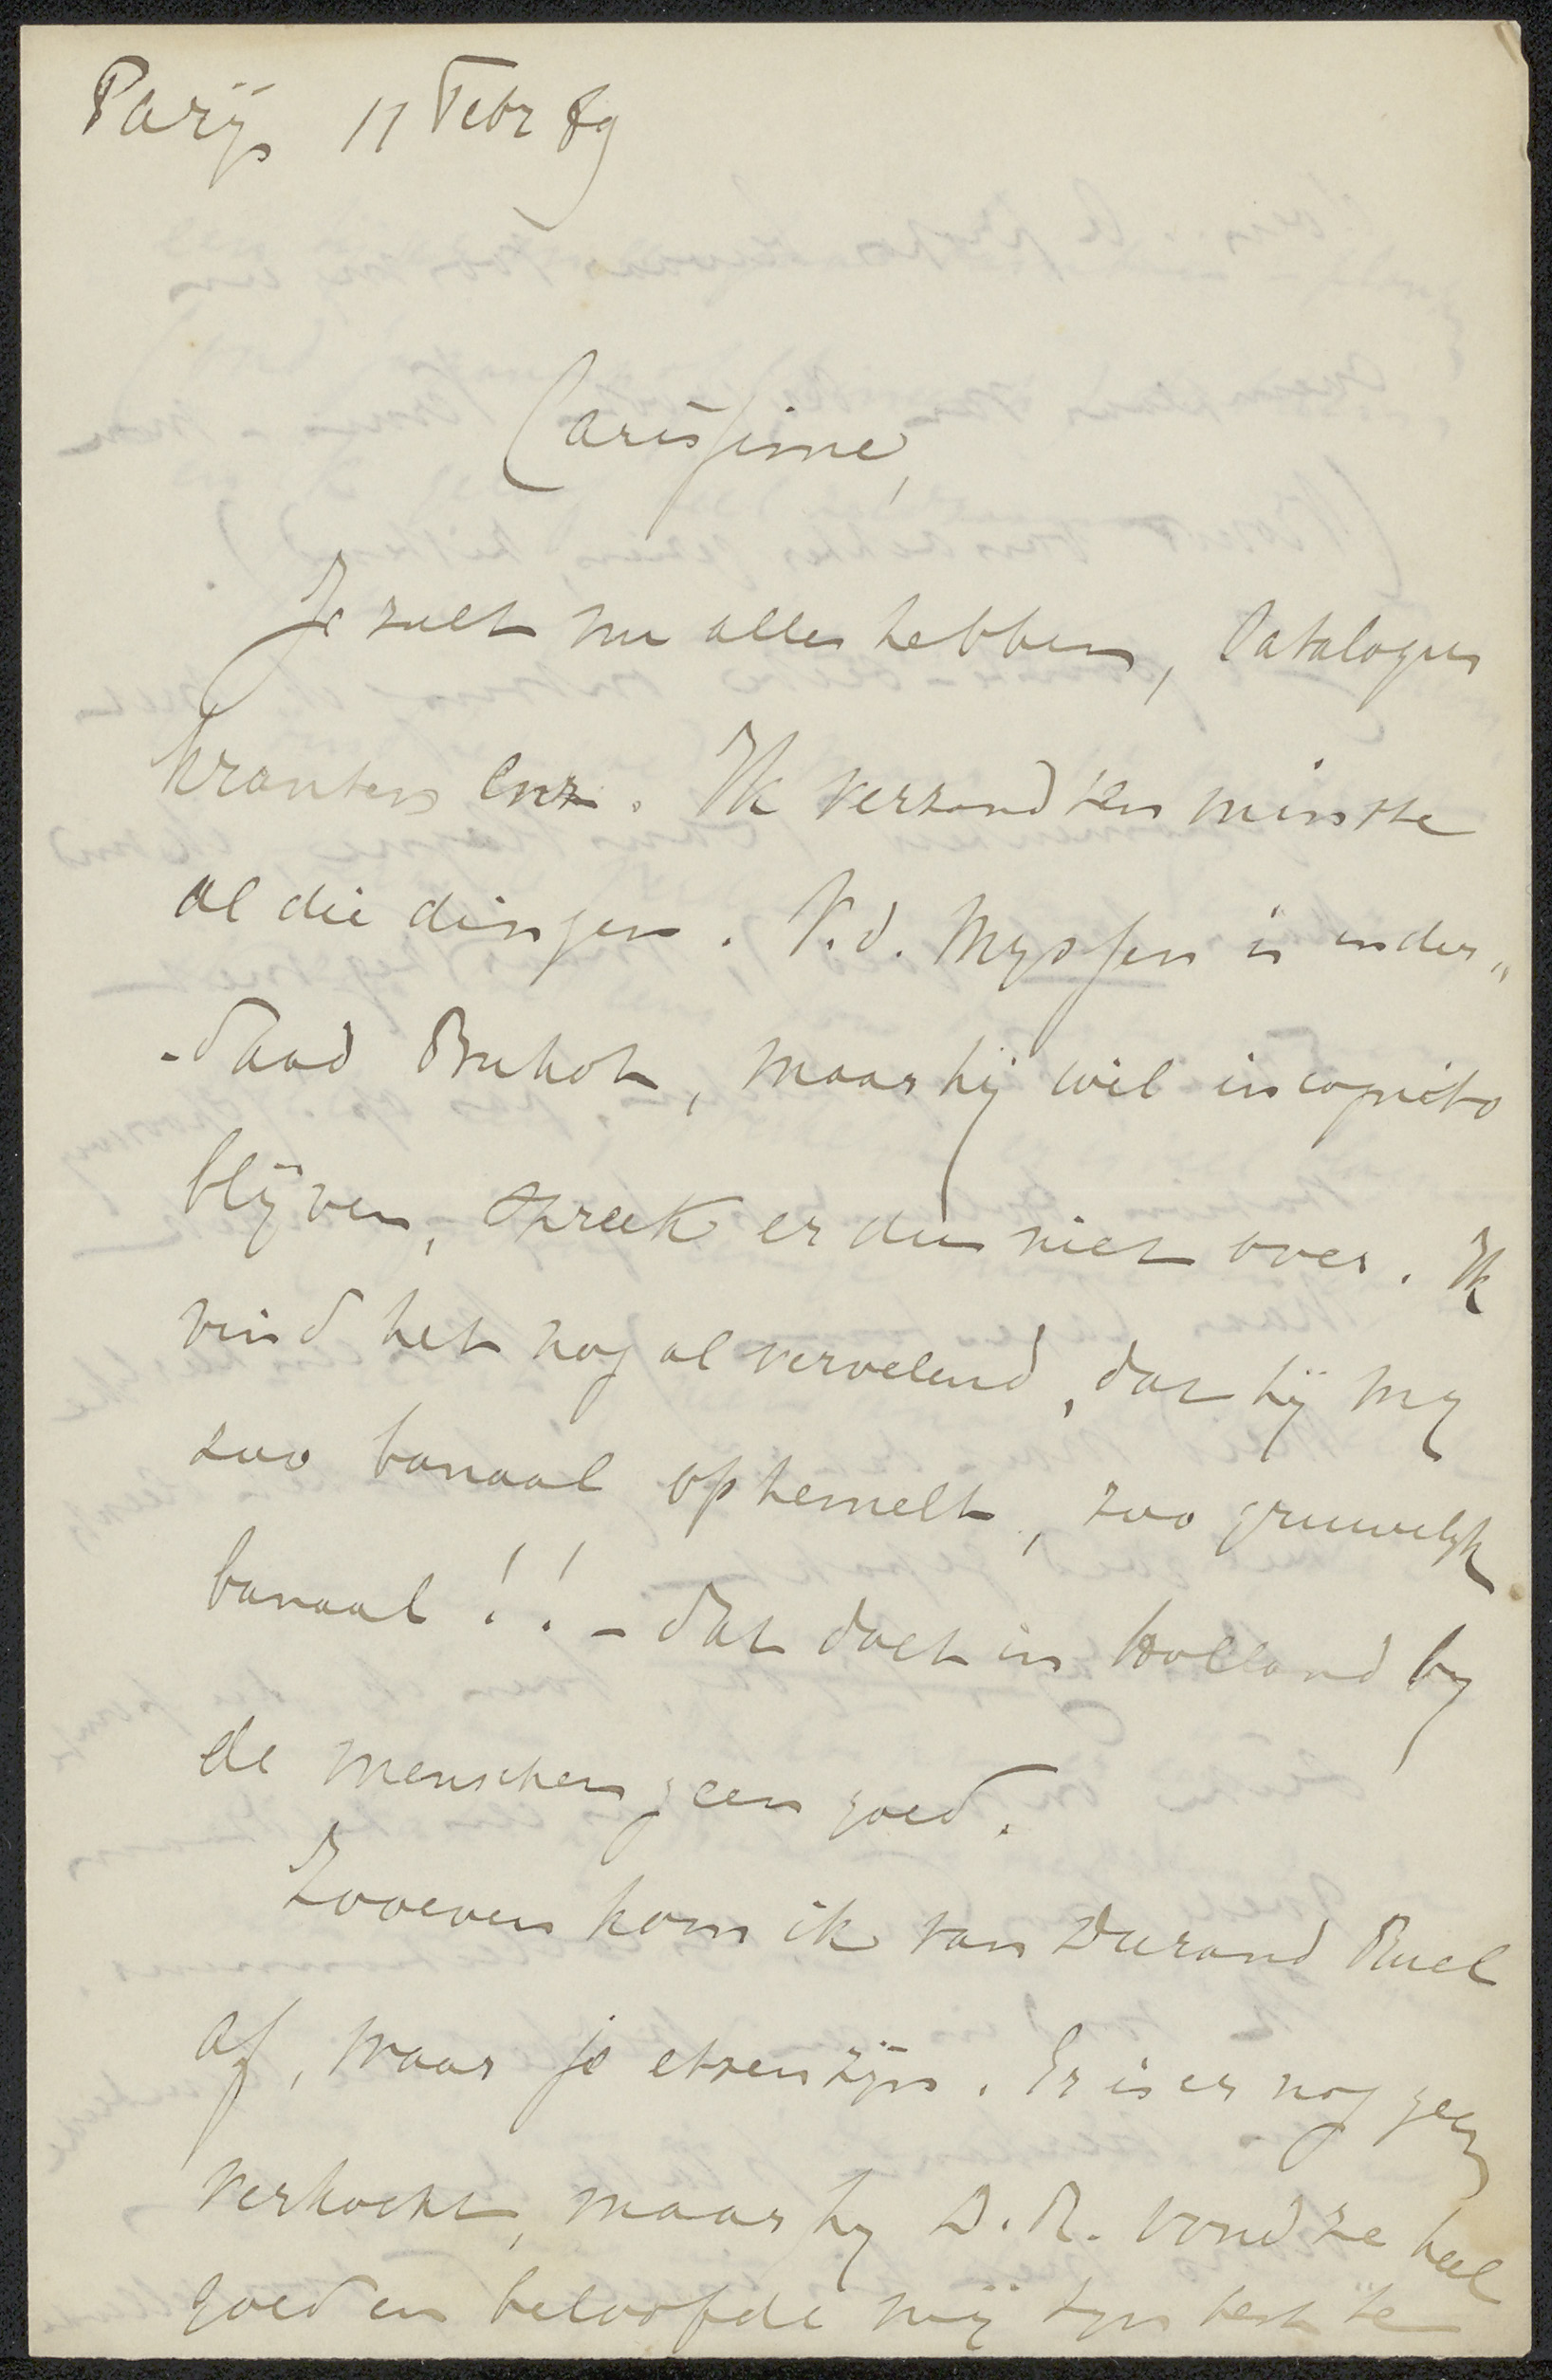 Parÿs 11 Febr 89
Carissime,
Je zult nu alles hebben, Catalogus
kranten enz. Ik verzond ten minste
al die dingen. V.d. Myssen is inder„
-daad Buhot, maar hÿ wil incognito
blÿven, spreek er dus niet over. Ik
vind het nog al vervelend, dat hÿ my
zoo banaal ophemelt, zoo gruwelyk
banaal!! – dat doet in Holland by
de menschen geen goed.
Zooeven kom ik van Durand Ruel
af, waar je etsen zÿn. Er is er nog geen
verkocht, maar hy D.R. vond ze heel
goed en beloofde mÿ zyn best te